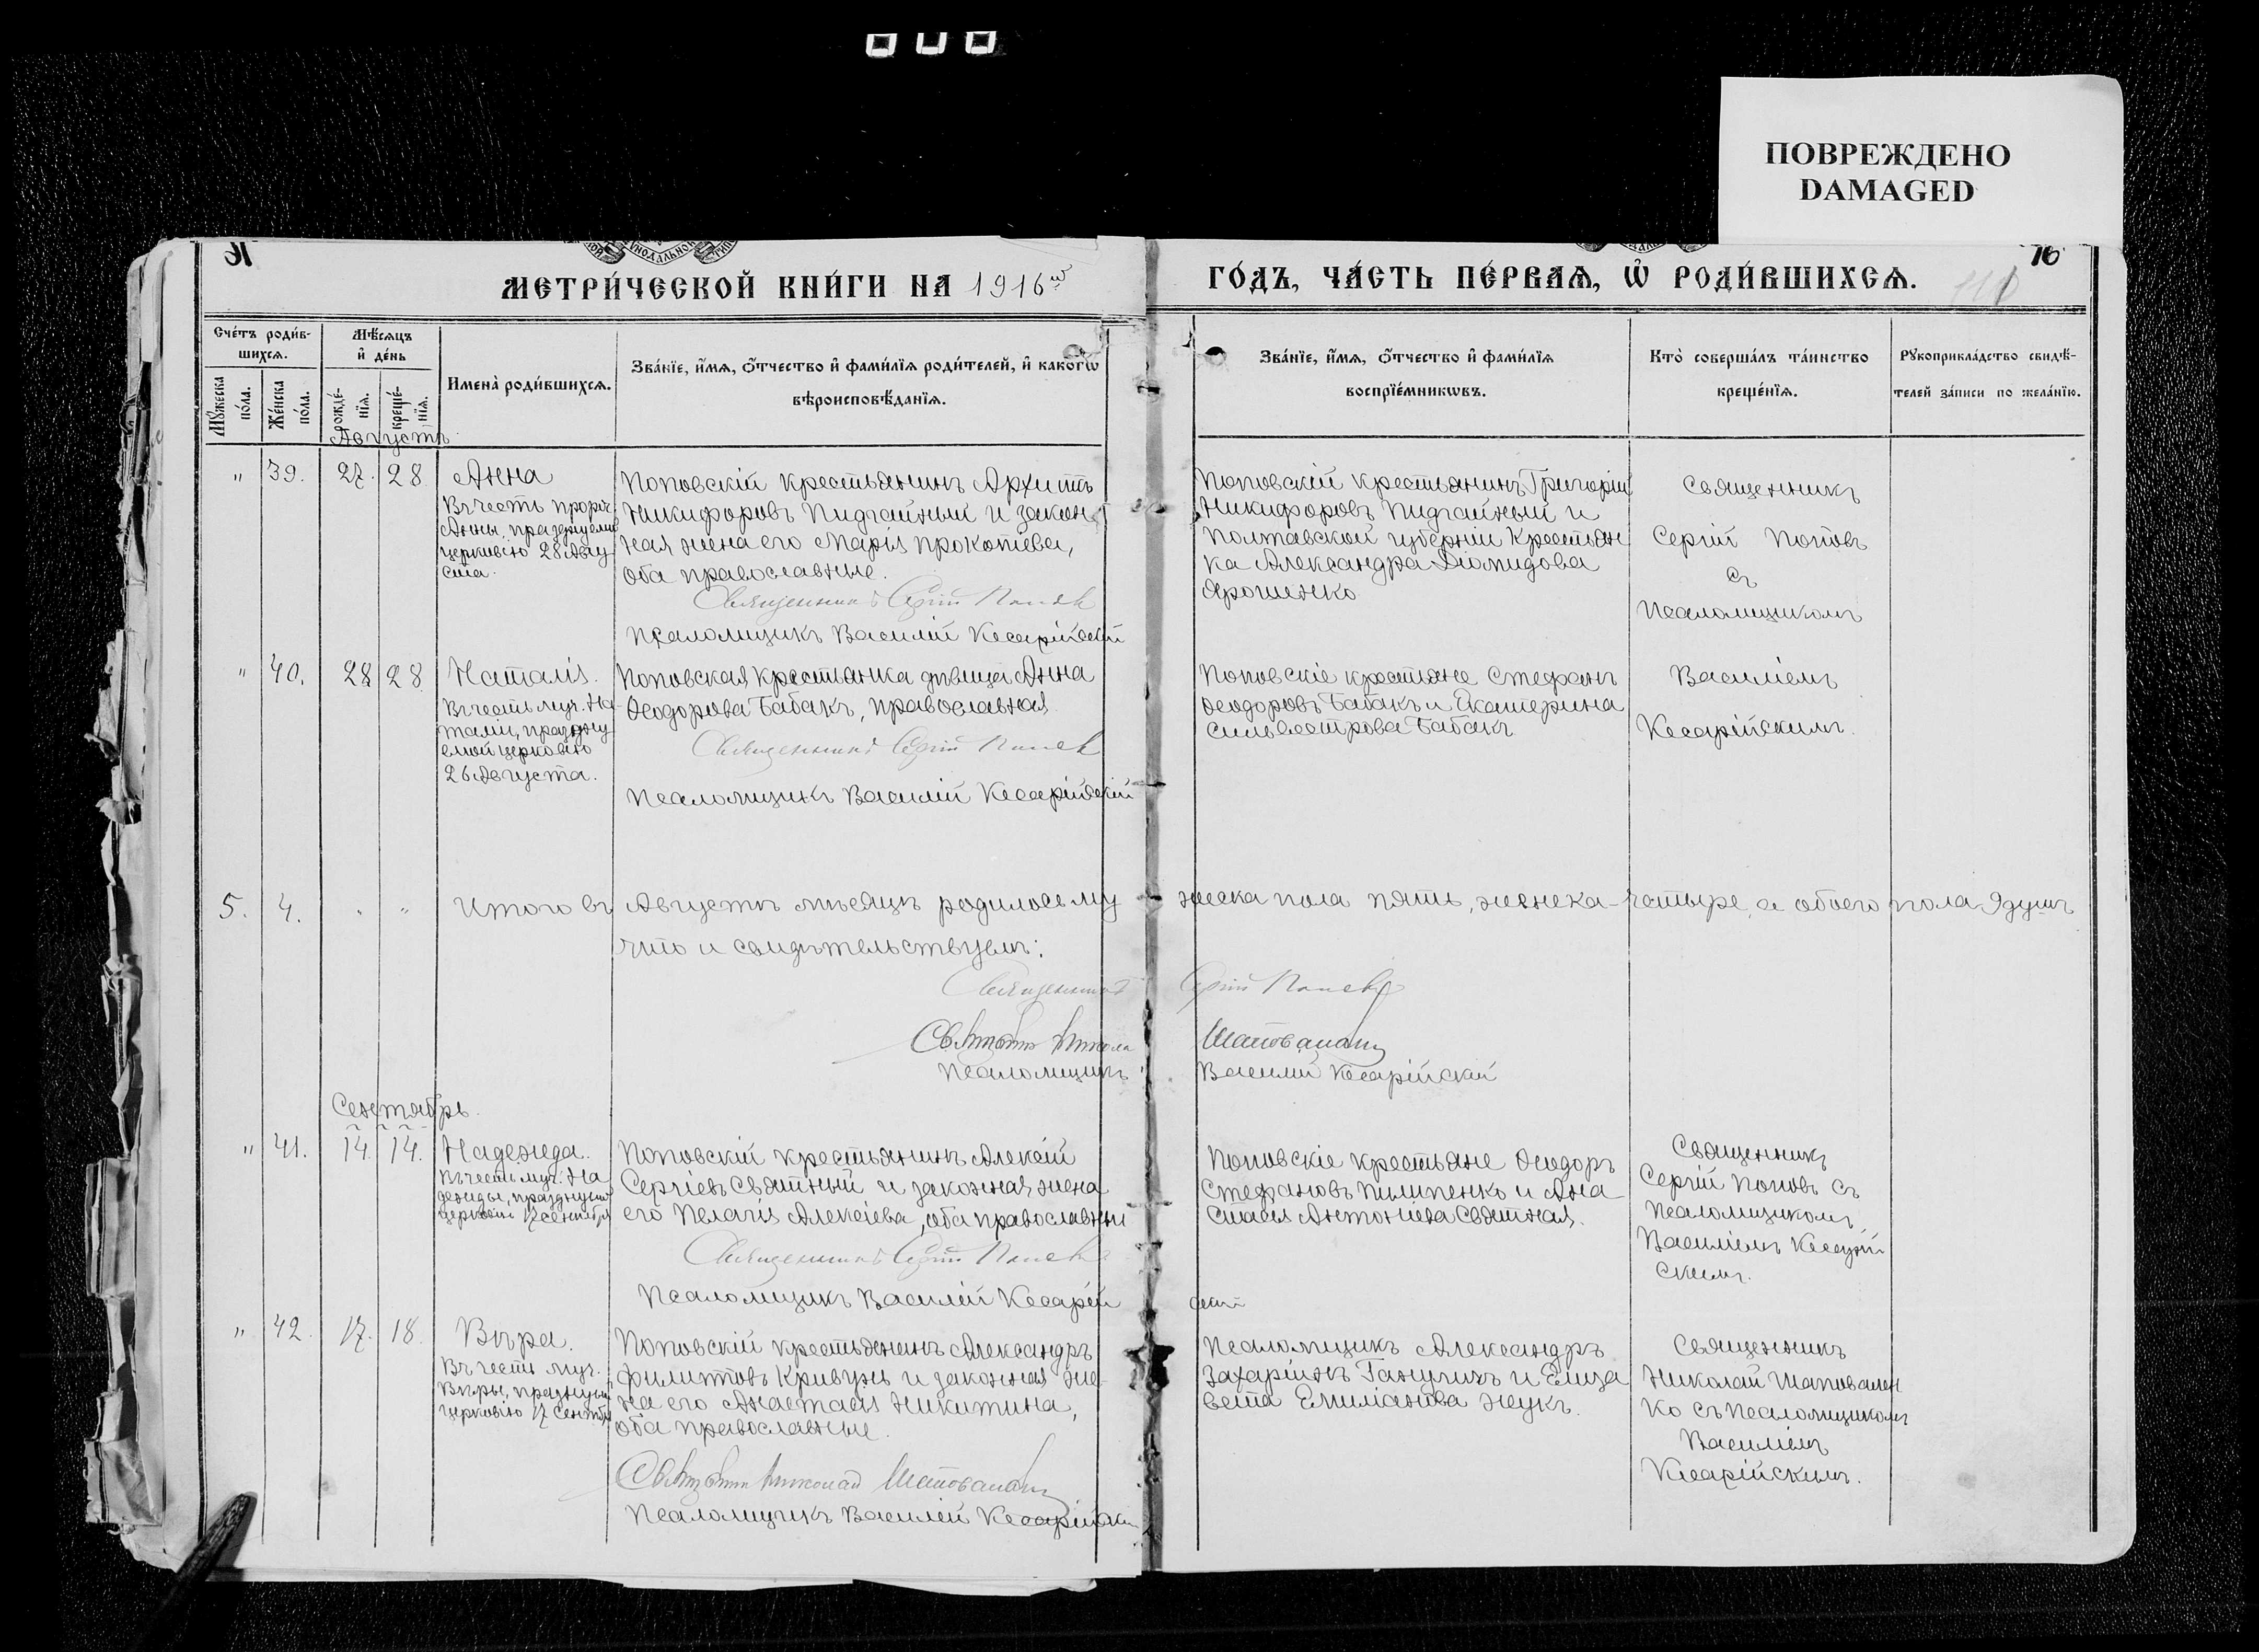 ПОВРЕЖДЕНО
DAMAGED
МЕТРИ́ЧЕСКОЙ КНИ́ГИ НА 1916й
ГО́ДЪ, ЧА́СТЬ ПЕ́РВАѦ, Ѡ҆ РОДИ́ВШИХСѦ.
16
Сче́тъ роди́в-
шихсѧ.
Мꙋ́жеска по́ла.
Же́нска по́ла.
Мѣ́сѧцъ
и҆ де́нь
рожде́-
нїѧ.
креще́-
нїѧ.
Имена̀ роди́вшихсѧ.
Зва́нїе, и҆́мѧ, ѻ҆́тчество и҆ фами́лїѧ роди́телей, и҆ како́гѡ
вѣроисповѣ́данїѧ.
Зва́нїе, и҆́мѧ, ѻ҆́тчество и҆ фами́лїѧ
воспрїе́мникѡвъ.
Кто̀ соверша́лъ та́инство
креще́нїѧ.
Рꙋкоприкла́дство свидѣ́-
телей за́писи по жела́нїю.
Августъ
" 39. 27. 28 Анна
Въ честь прор.
Анны, празднуемой
церковію 28 Авгу
ста.
Поповскій крестьянинъ Архипъ
Никифоровъ Пидгайный и закон-
ная жена его Марія Прокопіева,
оба православные.
Священникъ Сергій Поповъ
Псаломщикъ Василій Кесарійскій
Поповскій крестьянинъ Григорій
Никифоровъ Пидгайный и
Полтавской губерніи крестьян
ка Александра Діомидова
Ярошенко.
Священникъ
Сергій Поповъ
съ
Псаломщикомъ
Василіемъ
Кесарійскимъ.
" 40. 28 28 Наталія.
Въ честь муч. На-
таліи, праздну
емой церковію
26 Августа.
Поповская крестьянка дѣвица Анна
Ѳеодорова Бабакъ, православная
Священникъ Сергій Поповъ
Псаломщикъ Василій Кесарійскій
Поповскіе крестьяне Стефанъ
Ѳеодоровъ Бабакъ и Екатерина
Сильвестрова Бабакъ
5. 4. " " Итого въ Августѣ мѣсяцѣ родилось му жеска пола пять, женска-четыре, а обоего пола 9 душъ
что и свидѣтельствуемъ:
Священникъ Сергій Поповъ
Священникъ Николай Шаповаленко
Псаломщикъ Василій Кесарійскій
Сентябрь.
" 41. 14. 14. Надежда.
Въ честь муч. На
дежды, празднуемой
церковію 17 сентября
Поповскій крестьянинъ Алексій
Сергіевъ Святный и законная жена
его Пелагія Алексіева, оба православны
Священникъ Сергій Поповъ
Псаломщикъ Василій Кесарій скій
Поповскіе крестьяне Ѳеодоръ
Стефановъ Пилипенко и Ана
стасія Антоніева Святная.
Священникъ
Сергій Поповъ съ
Псаломщикомъ
Василіемъ Кесарій
скимъ.
" 42. 17. 18. Вѣра.
Въ честь муч.
Вѣры, празднуемой
церковію 17 Сентяб
Поповскій крестьянинъ Александръ
Филиповъ Кривунъ и законная же-
на его Анастасія Никитина,
оба православные.
Священникъ Николай Шаповаленко
Псаломщикъ Василій Кесарійскій
Псаломщикъ Александръ
Захаріинъ Ганулихъ и Елиза
вета Емиліанова Жукъ.
Священникъ
Николай Шаповален
ко съ Псаломщикомъ
Василіемъ
Кесарійскимъ.